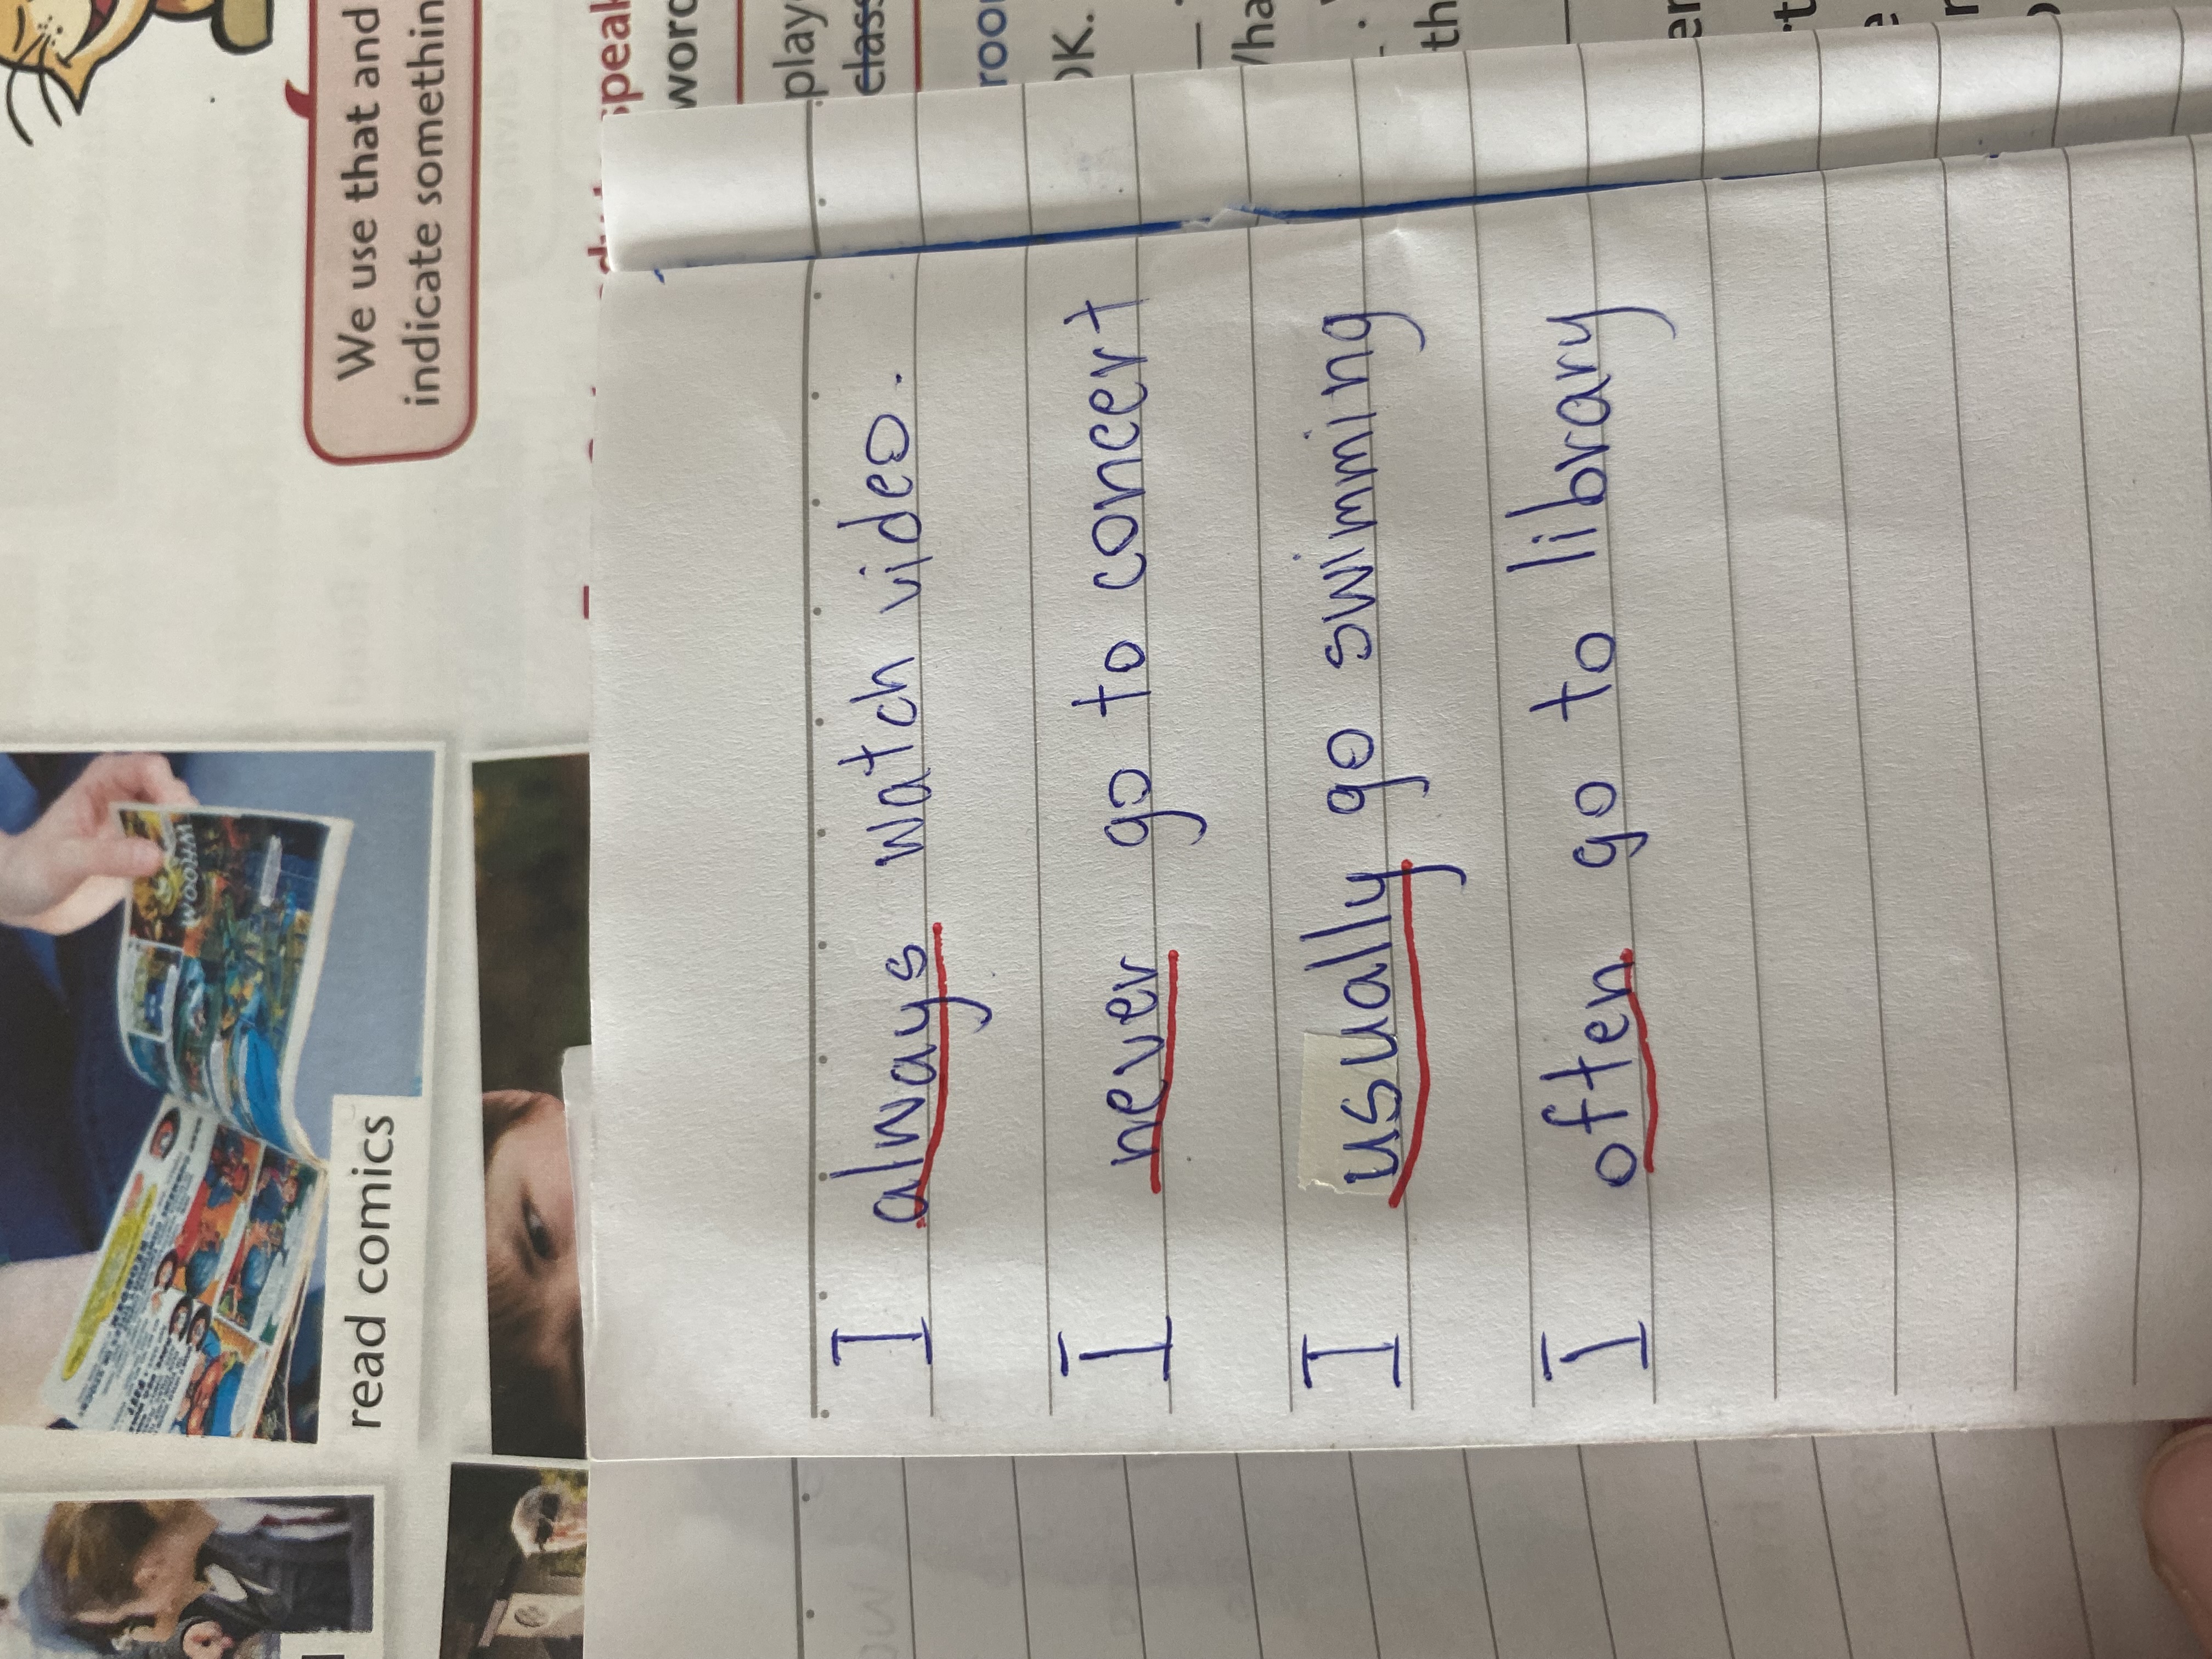 WHOOM
read comics
We use that and
indicate somethin
speak
word
play
class
I always watch video.
I never go to concert
OK.
I usually go swimming
I often go to library